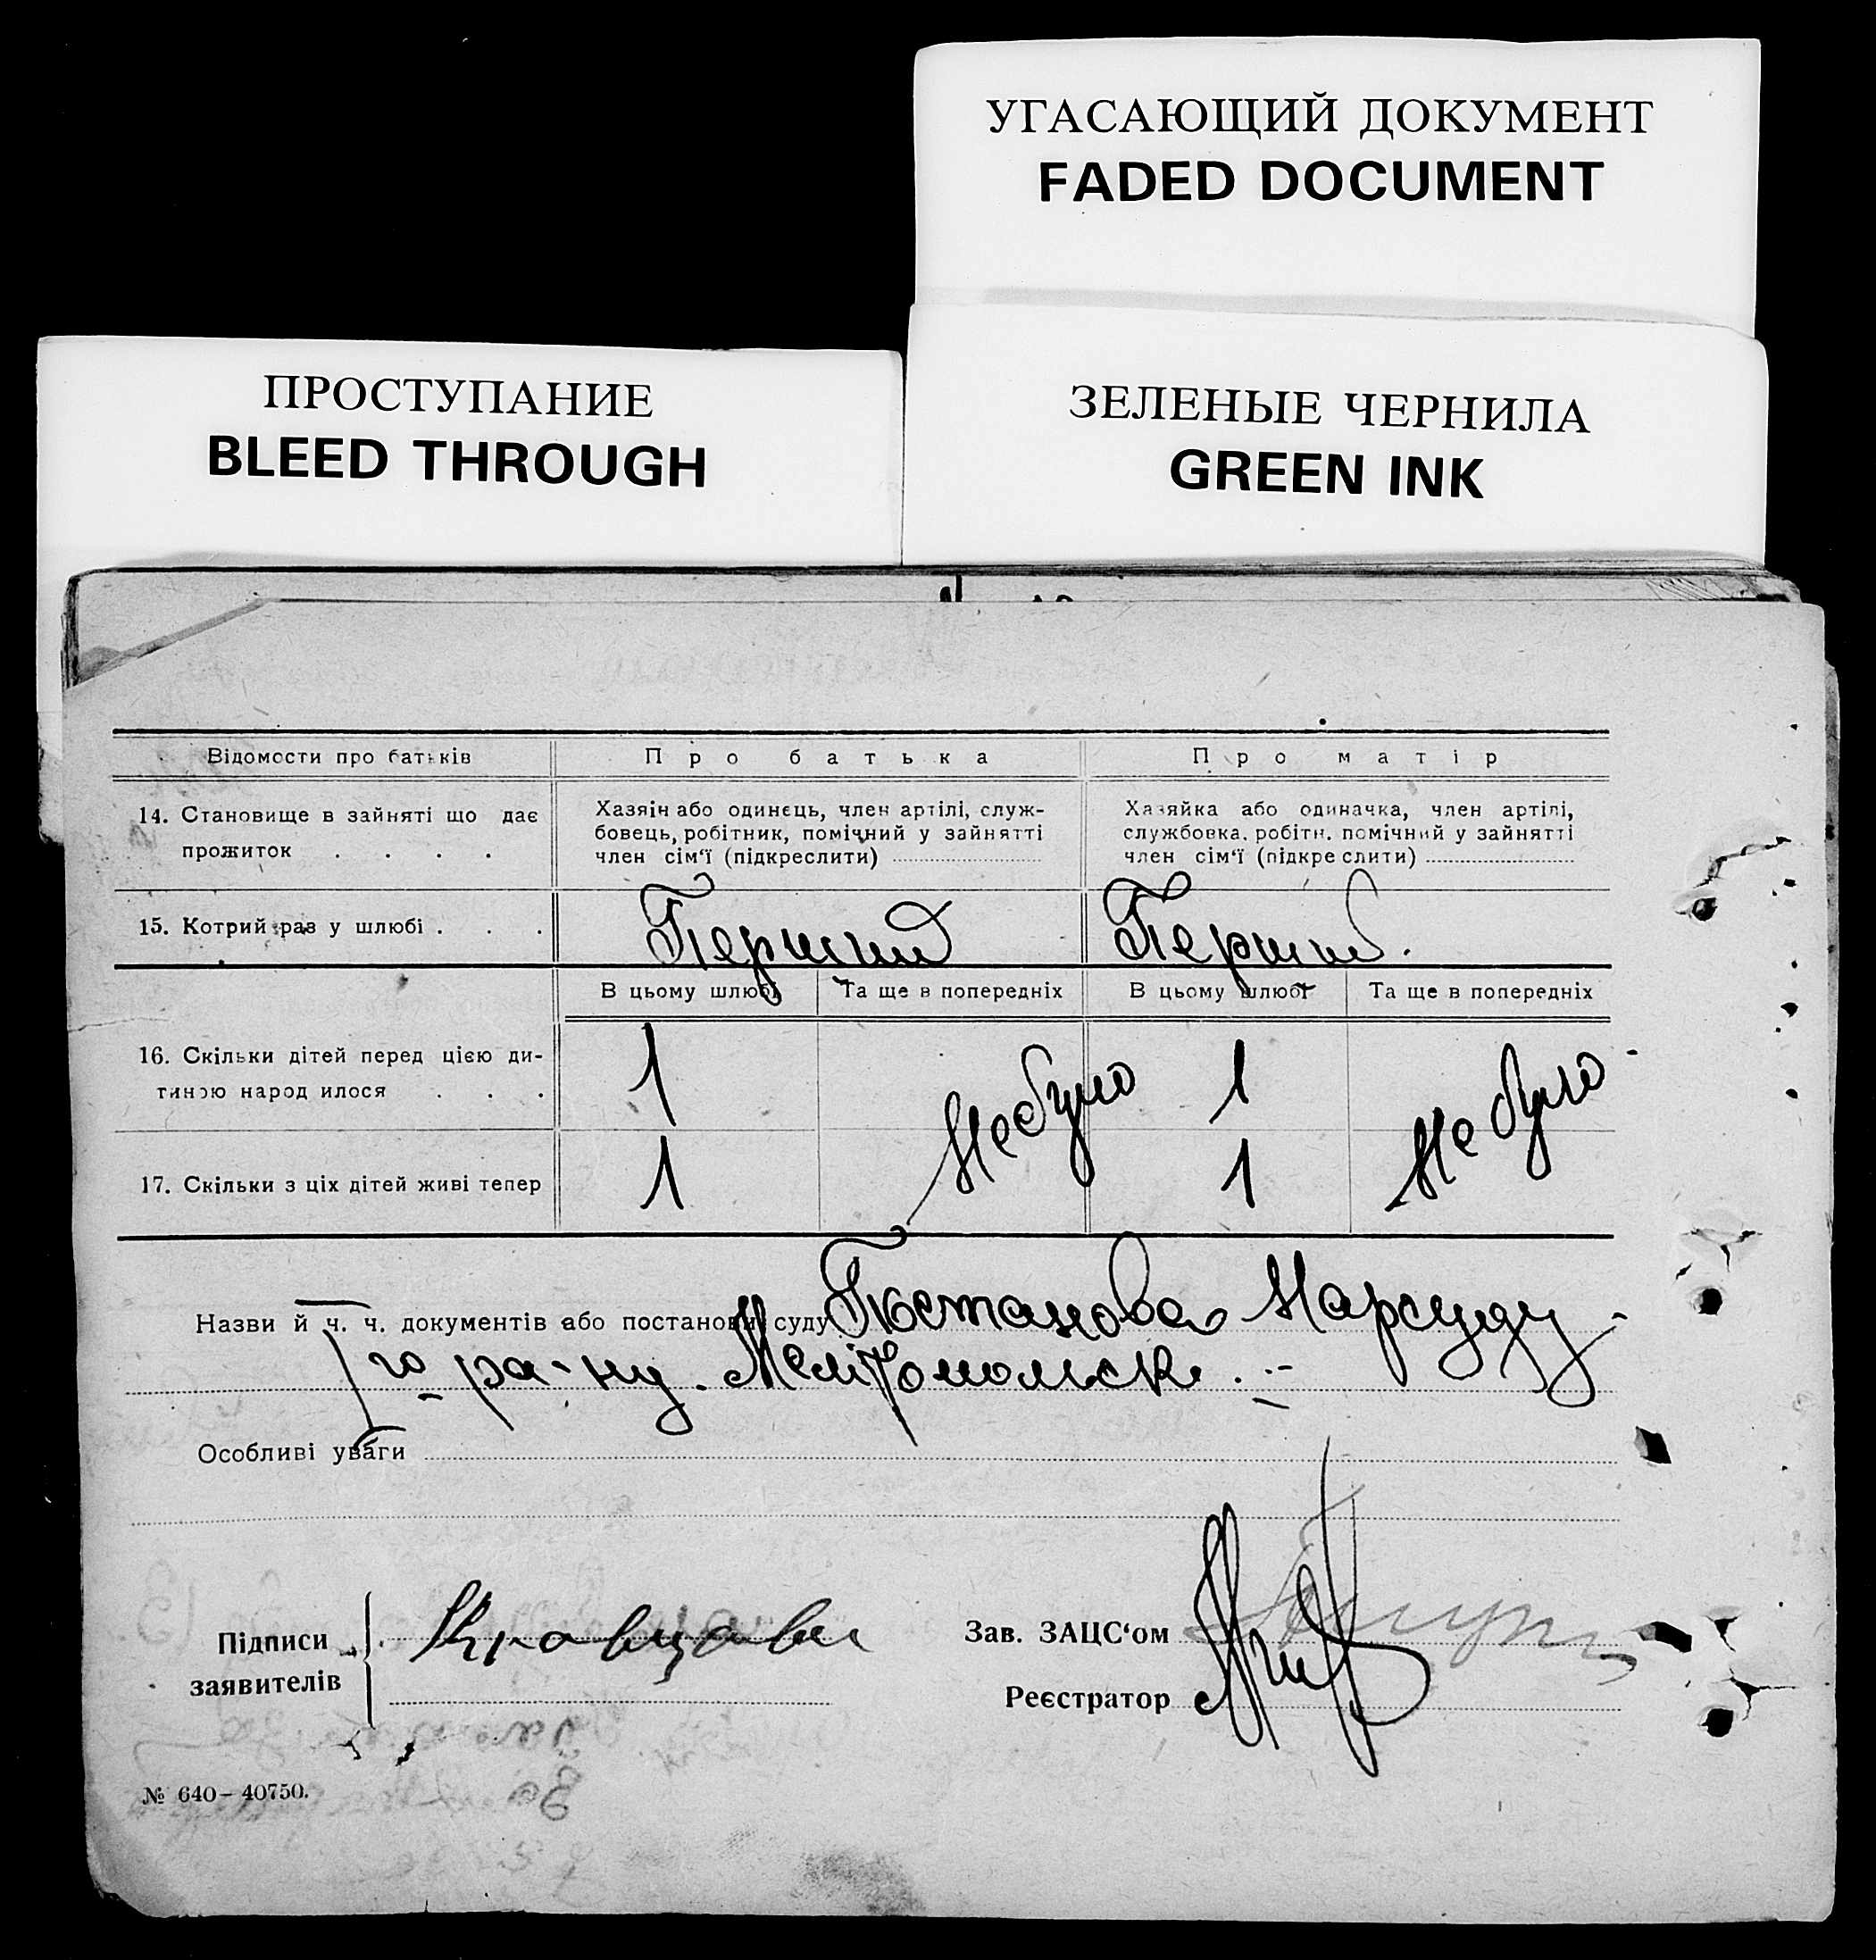 УГАСАЮЩИЙ ДОКУМЕНТ
FADED DOCUMENT
ПРОСТУПАНИЕ
BLEED THROUGH
ЗЕЛЕНЫЕ ЧЕРНИЛА
GREEN INK
Відомости про батьків
Про батька
Про матір
14. Становище в зайняті що дає
прожиток . . . .
Хазяїн або одинець, член артілі, служ-
бовець, робітник, помічний у зайнятті
член сім'ї (підкреслити)
Хазяйка або одиначка, член артілі,
службовка, робітн. помічний у зайнятті
член сім'ї (підкреслити)
15. Котрий раз у шлюбі . . .
Перший
Перший.
В цьому шлюбі
Та ще в попередніх
В цьому шлюбі
Та ще в попередніх
16. Скільки дітей перед цією ди-
тиною народилося . . .
1
Не було
1
Не було
17. Скільки з ціх дітей живі тепер
1
1
Назви й ч. ч. документів або постанови суду Постанова Нарсуду
I го ра-ну. Мелітопольськ.
Особливі уваги
Підписи
заявителів
Кравцова
Зав. ЗАЦС'ом
Реєстратор
№ 640–40750.